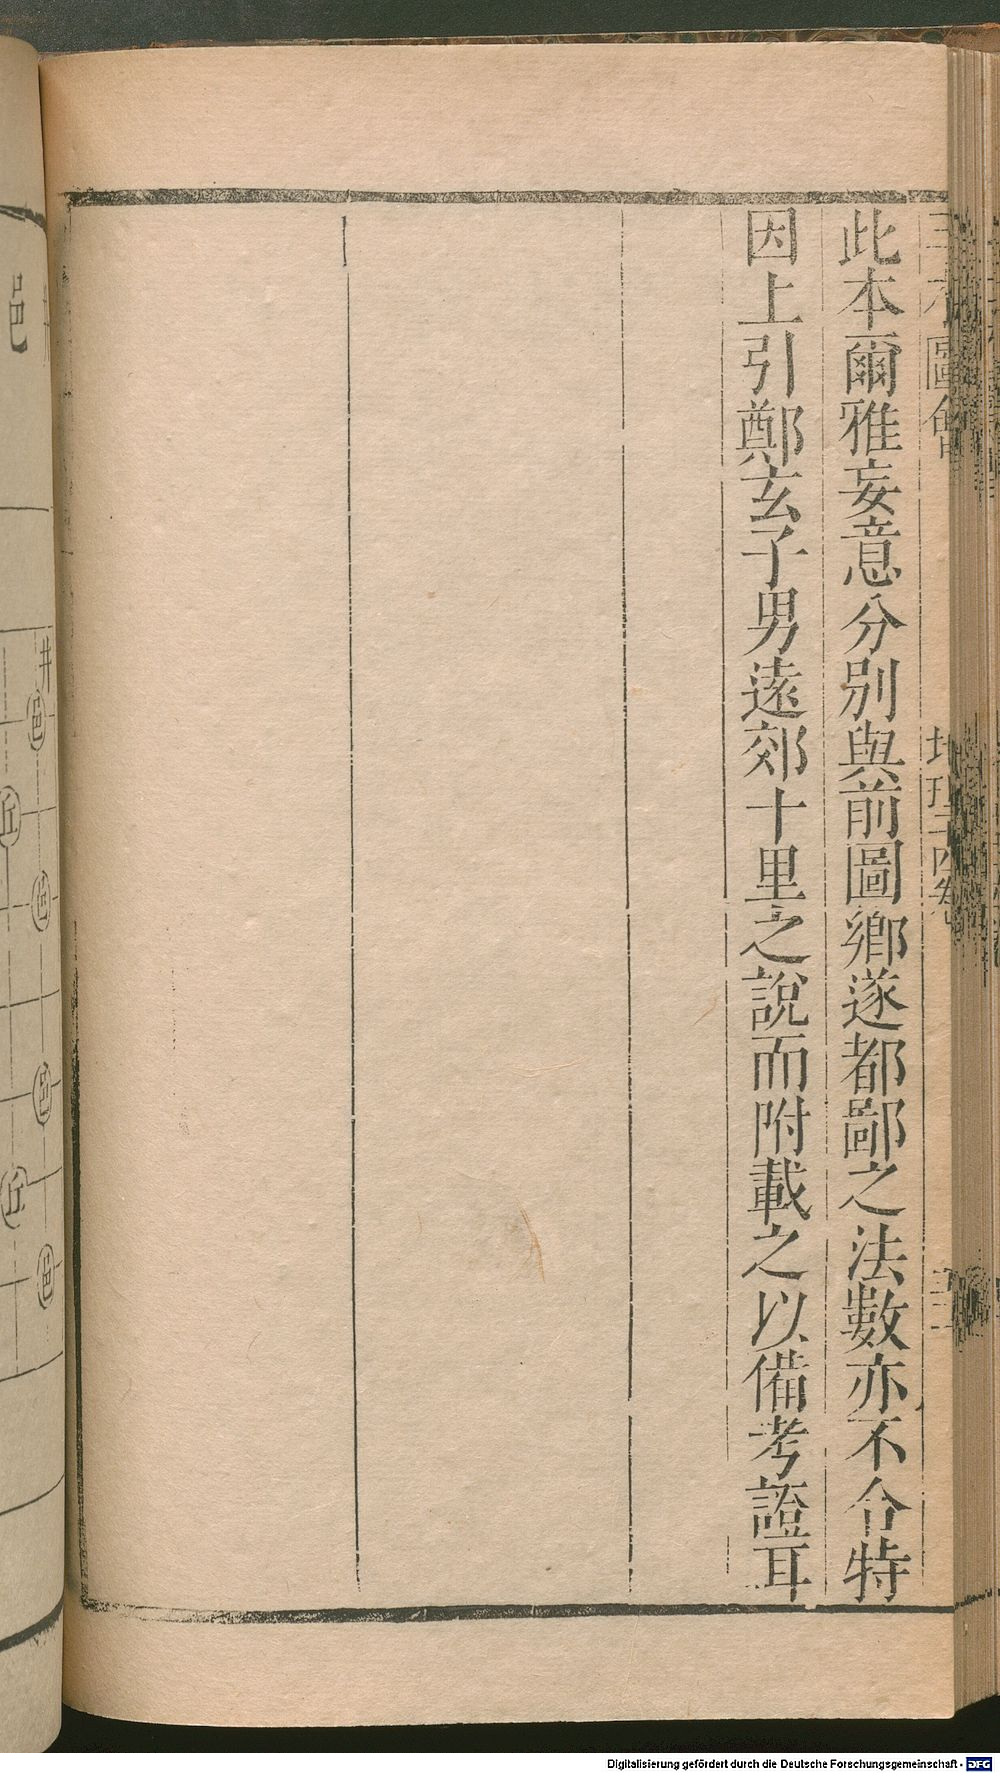 此本爾雅妄意分別與前圖鄉遂都鄙之法數亦不合特
因上引鄭玄子男遠郊十里之說而附載之以備考證耳
圖會
邑
井
邑
丘
邑
邑
丘
邑
Digitalisierung gefördert durch die Deutsche Forschungsgemeinschaft - DFG